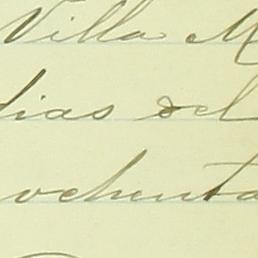 Villa M
dias del
ochenta